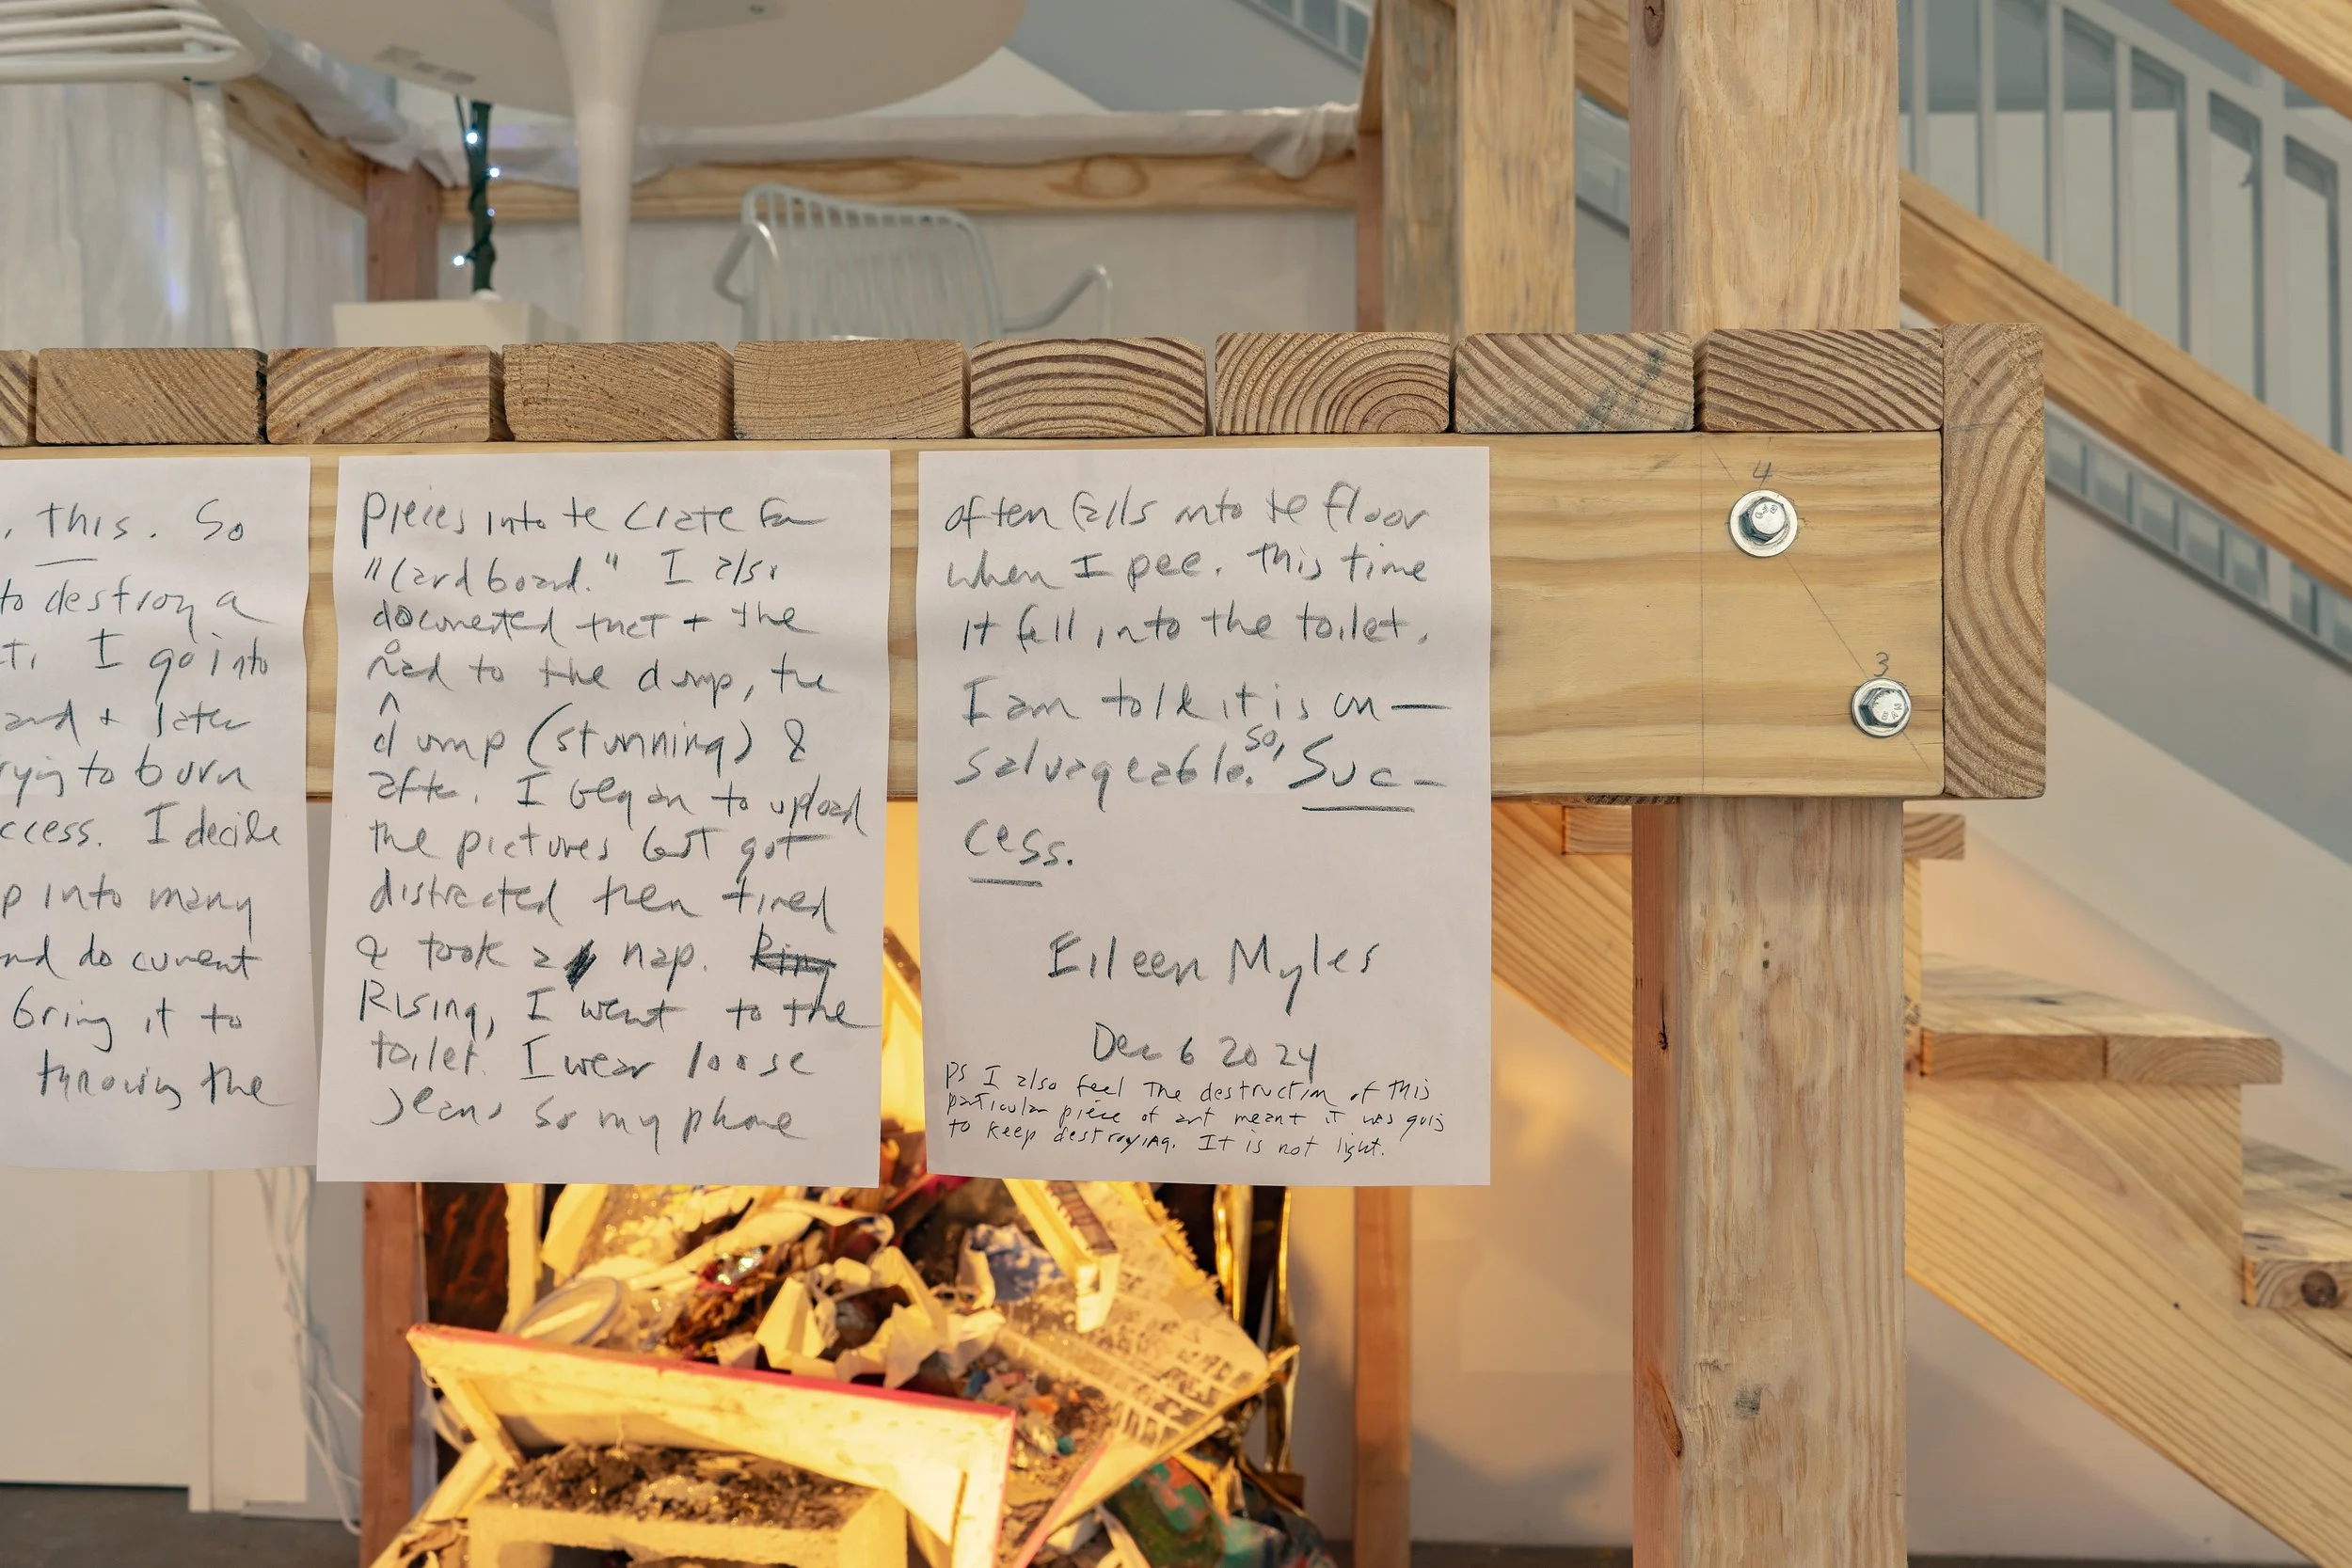 , this. So
to destroy a
t. I go into
and + later
rying to burn
ccess. I decide
p into many
nd document
bring it to
throwing the
pieces into te crate for
"Cardboard." I also
documented that + the
road to the dump, the
^
dump (stunning) &
after. I began to upload
the pictures but got
distracted then tired
& took a nap. Ring
Rising, I went to the
toilet. I wear loose
jeans so my phone
often falls into te floor
when I pee. This time
it fell into the toilet.
I am told it is un—
salvageable. So, Suc-
cess.
Eileen Myles
Dec 6 2024
PS I also feel the destruction of this
particular piece of art meant it was going
to keep destroying. It is not light.
4
3